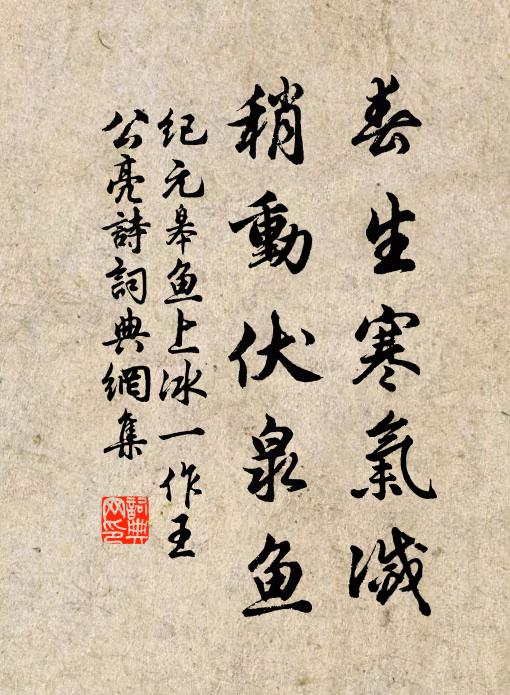 春生寒氣減
稍動伏泉魚
纪元皋鱼上冰一作王
公亮詩詞典網集
詞典
网印